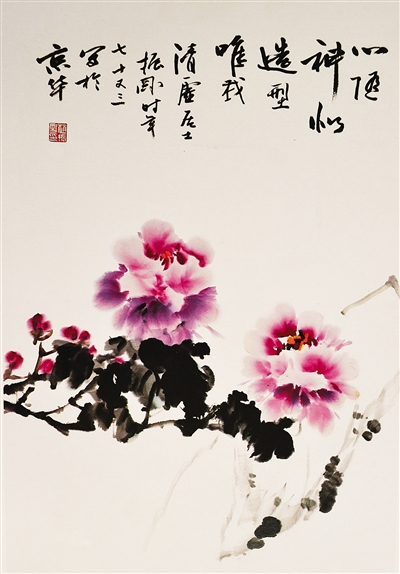 心随
神似
造型
唯我
清虚居士
振 时年
七十又三
写於
京华